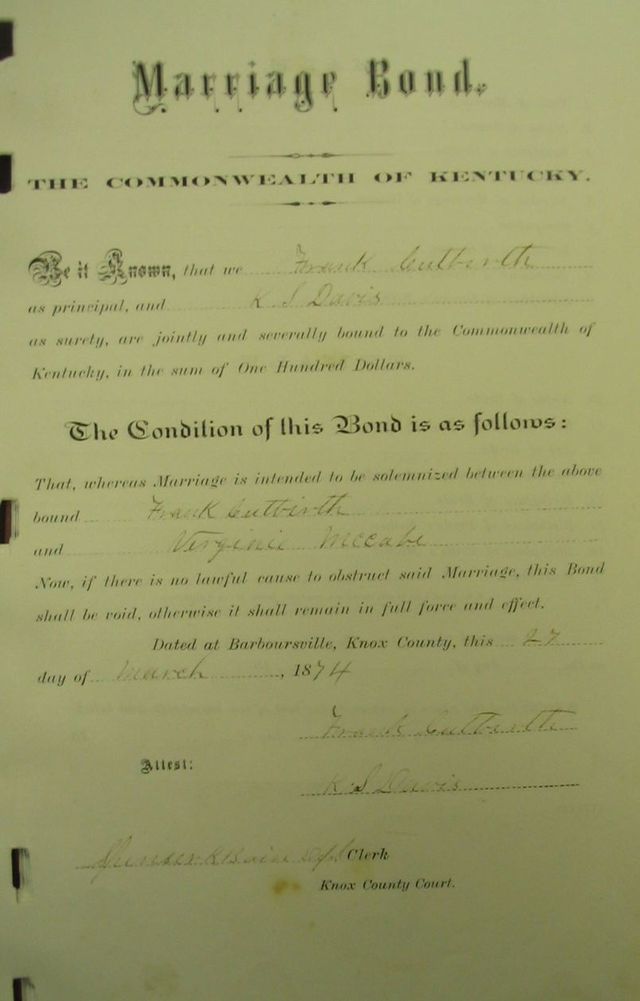 Marriage Bond.
THE COMMONWEALTH OF KENTUCKY.
Be it Known, that we Frank Cutbirth
as principal, and K S Davis
as surety, are jointly and severally bound to the Commonwealth of
Kentucky, in the sum of One Hundred Dollars.
The Condition of this Bond is as follows:
That, whereas Marriage is intended to be solemnized between the above
bound Frank Cutbirth
and Verginie Mccabe
Now, if there is no lawful cause to obstruct said Marriage, this Bond
shall be void, otherwise it shall remain in full force and effect.
Dated at Barboursville, Knox County, this 27
day of March, 1874
Frank Cutbirth
Attest:
K. S Davis
Clerk
Knox County Court.